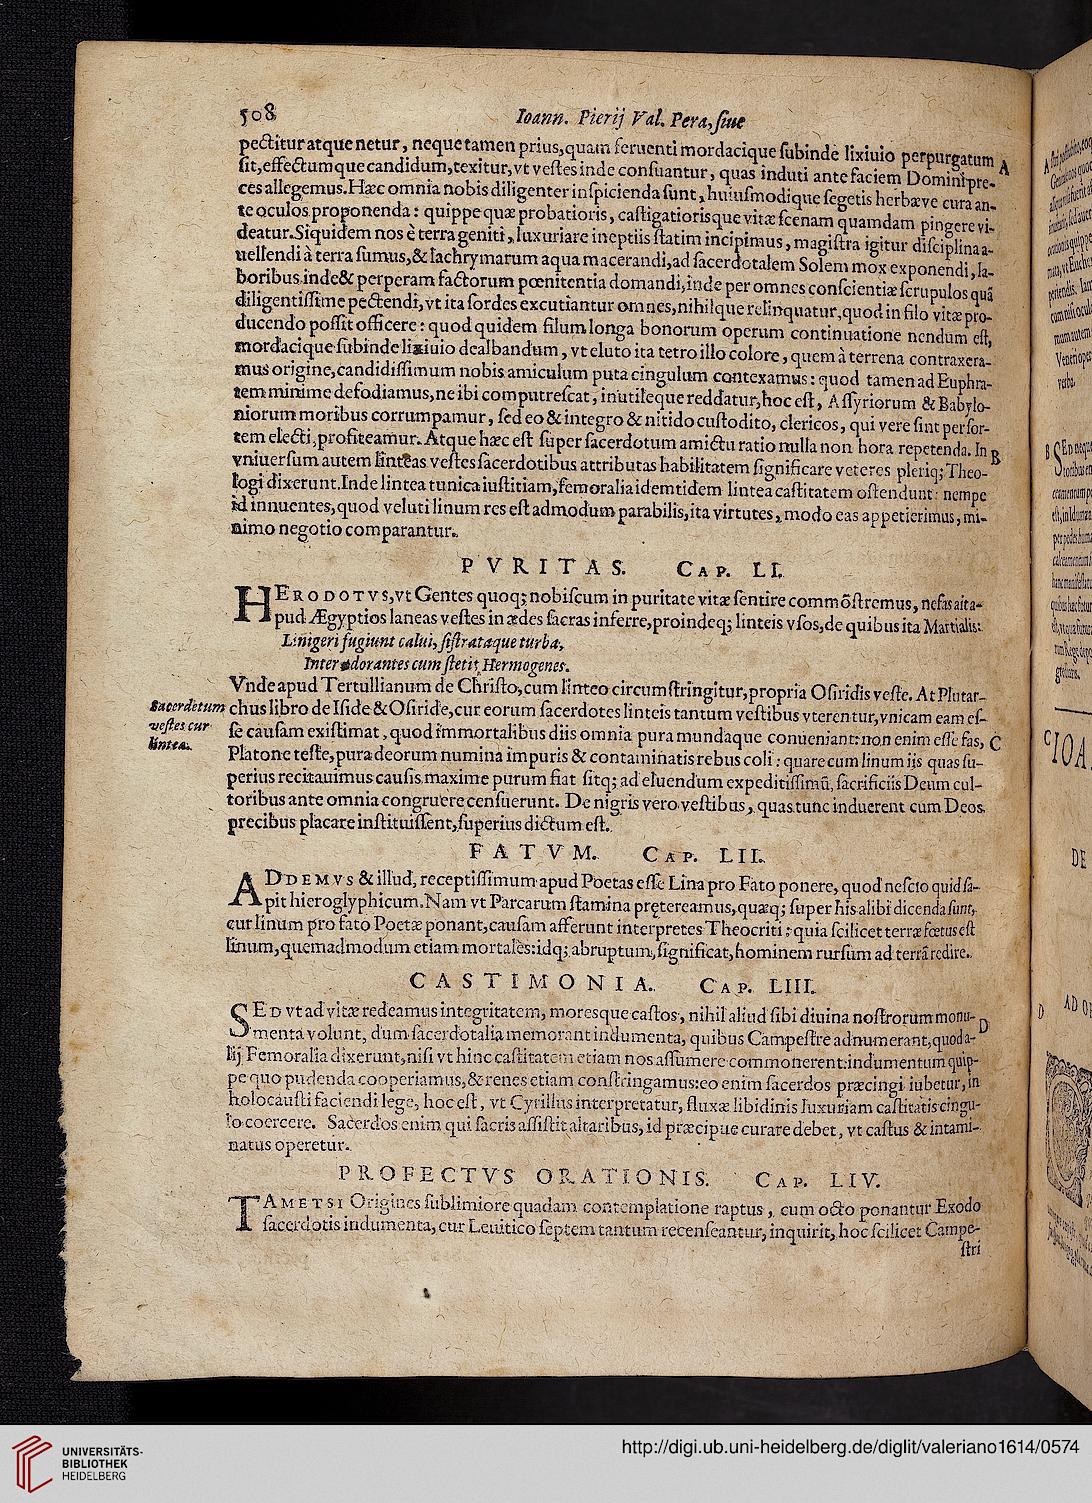 508 Ioann. Pierij Val. Pera, siue
pectitur atque netur, neque tamen prius, quam feruenti mordacique subinde lixiuio perpurgatum A
sit, effectumque candidum, texitur, vt vestes inde consuantur, quas induti ante faciem Domini pre-
ces allegemus. Hæc omnia nobis diligenter inspicienda sunt, huiusmodique segetis herbæve cura an-
te oculos proponenda: quippe quæ probatioris, castigatiorisque vitæ scenam quamdam pingere vi-
deatur. Siquidem nos è terra geniti, luxuriare ineptiis statim incipimus, magistra igitur disciplina a-
uellendi à terra sumus, & lachrymarum aqua macerandi, ad sacerdotalem Solem mox exponendi, la-
boribus inde & perperam factorum pœnitentia domandi, inde per omnes conscientiæ scrupulos quā
diligentissime pectendi, vt ita sordes excutiantur omnes, nihilque relinquatur, quod in filo vitæ pro-
ducendo possit officere: quod quidem filum longa bonorum operum continuatione nendum est,
mordacique subinde lixiuio dealbandum, vt eluto ita tetro illo colore, quem à terrena contraxera-
mus origine, candidissimum nobis amiculum puta cingulum contexamus: quod tamen ad Euphra-
tem minime defodiamus, ne ibi computrescat, inutileque reddatur, hoc est, Assyriorum & Babylo-
niorum moribus corrumpamur, sed eo & integro & nitido custodito, clericos, qui vere sint per sor-
tem electi, profiteamur. Atque hæc est super sacerdotum amictu ratio nulla non hora repetenda. In B
vniuersum autem linteas vestes sacerdotibus attributas habilitatem significare veteres pleriq; Theo-
logi dixerunt. Inde lintea tunica iustitiam, femoralia identidem lintea castitatem ostendunt: nempe
id innuentes, quod veluti linum res est admodum parabilis, ita virtutes, modo eas appetierimus, mi-
nimo negotio comparantur.
PVRITAS. CAP. LI.
HERODOTVS, vt Gentes quoq; nobiscum in puritate vitæ sentire commōstremus, nefas ait a-
pud Ægyptios laneas vestes in ædes sacras inferre, proindeq; linteis vsos, de quibus ita Martialis:
Linigeri fugiunt calui, sistrataque turba,
Inter adorantes cum stetit Hermogenes.
Vnde apud Tertullianum de Christo, cum linteo circumstringitur, propria Osiridis veste. At Plutar-
Sacerdotum
vestes cur
lintea.
chus libro de Iside & Osiride, cur eorum sacerdotes linteis tantum vestibus vterentur, vnicam eam es-
se causam existimat, quod immortalibus diis omnia pura mundaque conueniant: non enim esse fas, C
Platone teste, pura deorum numina impuris & contaminatis rebus coli: quare cum linum iis quas su-
perius recitauimus causis maxime purum fiat sitq; ad eluendum expeditissimū, sacrificiis Deum cul-
toribus ante omnia congruere censuerunt. De nigris vero vestibus, quas tunc induerent cum Deos
precibus placare instituissent, superius dictum est.
FATVM. CAP. LII.
ADDEMVS & illud, receptissimum apud Poetas esse Lina pro Fato ponere, quod nescio quid sa-
pit hieroglyphicum. Nam vt Parcarum stamina prętereamus, quæq; super his alibi dicenda sunt,
cur linum pro fato Poetæ ponant, causam afferunt interpretes Theocriti: quia scilicet terræ fœtus est
linum, quemadmodum etiam mortales: idq; abruptum, significat, hominem rursum ad terrā redire.
CASTIMONIA. CAP. LIII.
SED vt ad vitæ redeamus integritatem, moresque castos, nihil aliud sibi diuina nostrorum monu-
menta volunt, dum sacerdotalia memorant indumenta, quibus Campestre adnumerant, quod a- D
lij Femoralia dixerunt, nisi vt hinc castitatem etiam nos assumere commonerent: indumentum quip-
pe quo pudenda cooperiamus, & renes etiam constringamus: eo enim sacerdos præcingi iubetur, in
holocausti faciendi lege, hoc est, vt Cyrillus interpretatur, fluxæ libidinis luxuriam castitatis cingu-
lo coercere. Sacerdos enim qui sacris assistit altaribus, id præcipue curare debet, vt castus & intami-
natus operetur.
PROFECTVS ORATIONIS. CAP. LIV.
TAMETSI Origines sublimiore quadam contemplatione raptus, cum octo ponantur Exodo
sacerdotis indumenta, cur Leuitico septem tantum recenseantur, inquirit, hoc scilicet Campe-
stri
UNIVERSITÄTS-
BIBLIOTHEK
HEIDELBERG
http://digi.ub.uni-heidelberg.de/diglit/valeriano1614/0574